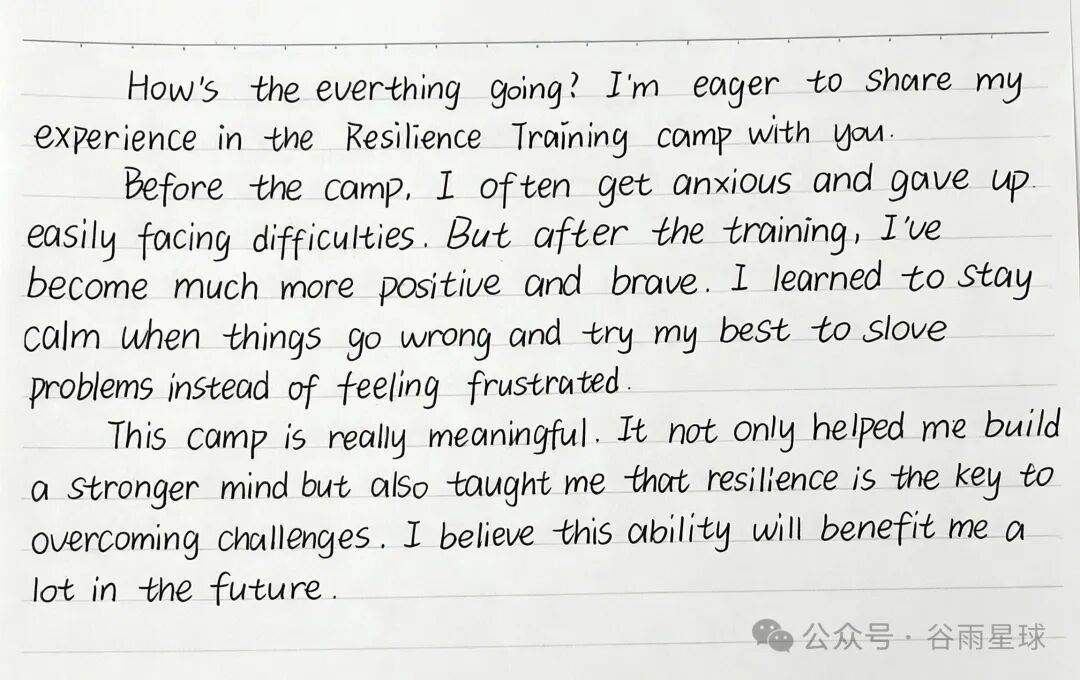 How's the everthing going? I'm eager to share my
experience in the Resilience Training camp with you.
Before the camp, I often get anxious and gave up
easily facing difficulties. But after the training, I've
become much more positive and brave. I learned to stay
calm when things go wrong and try my best to slove
problems instead of feeling frustrated.
This camp is really meaningful. It not only helped me build
a stronger mind but also taught me that resilience is the key to
overcoming challenges. I believe this ability will benefit me a
lot in the future.
公众号 · 谷雨星球